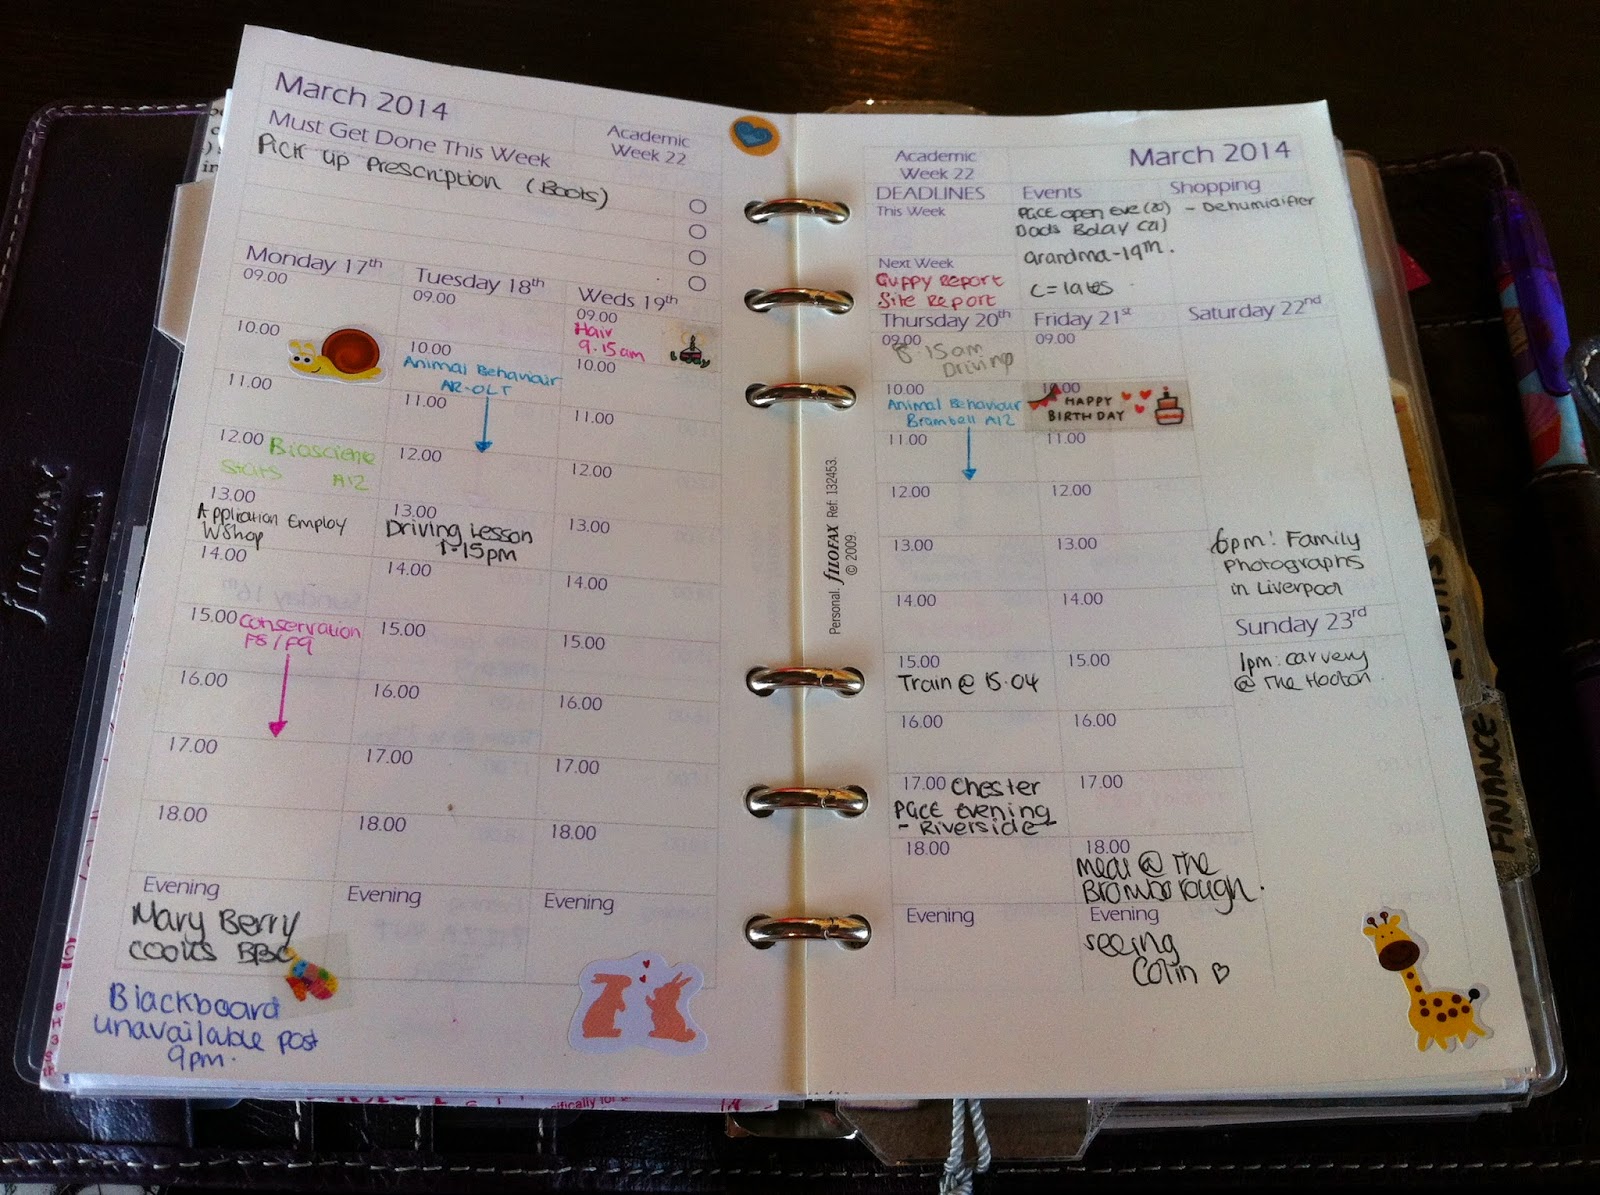 March 2014
Must Get Done This Week
Academic
Week 22
Pick up Prescription (Boots)
Monday 17th
09.00
10.00
11.00
12.00 Bioscience
Stats A12
13.00
Application Employ
WShop
14.00
15.00 Conservation
F8/F9
16.00
17.00
18.00
Evening
Mary Berry
Cooks BBC
Blackboard
unavailable post
9pm.
Tuesday 18th
09.00
10.00
Animal Behaviour
AR-OLT
11.00
12.00
13.00
Driving Lesson
1-15pm
14.00
15.00
16.00
17.00
18.00
Evening
Weds 19th
09.00
Hair
9.15am
10.00
11.00
12.00
13.00
14.00
15.00
16.00
17.00
18.00
Evening
Personal. filofax Ref: 132453.
© 2009.
Academic
Week 22
March 2014
DEADLINES
This Week
Next Week
Guppy Report
Site Report
Events
PGCE open Eve (20)
Dads Bday (21)
Grandma-19th.
C=lates
Shopping
- Dehumidifier
Thursday 20th
09.00
8.15am
Driving
10.00
Animal Behaviour
Brambell A12
11.00
12.00
13.00
14.00
15.00
Train @ 15.04
16.00
17.00 Chester
PGCE Evening
- Riverside
18.00
Evening
Friday 21st
09.00
10.00
HAPPY
BIRTHDAY
11.00
12.00
13.00
14.00
15.00
16.00
17.00
18.00
Meal @ The
Bromborough.
Evening
seeing
Colin
Saturday 22nd
6pm: Family
Photographs
in Liverpool
Sunday 23rd
1pm: carvery
@ The Hooton.
FINANCE
filofax